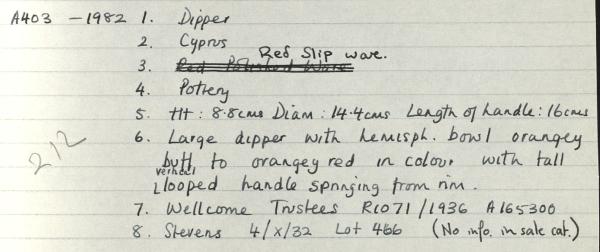 A403 - 1982 1. Dipper
2. Cyprus
Red Slip ware.
3. Red Polished Ware
4. Pottery
5. Ht : 8.8cms Diam : 14.4cms Length of handle : 16cms
6. Large dipper with hemisph. bowl orangey
buff to orangey red in colour with tall
vertical
looped handle springing from rim.
212
7. Wellcome Trustees R1071/1936 A165300
8. Stevens 4/X/32 Lot 466 (No info. in sale cat.)